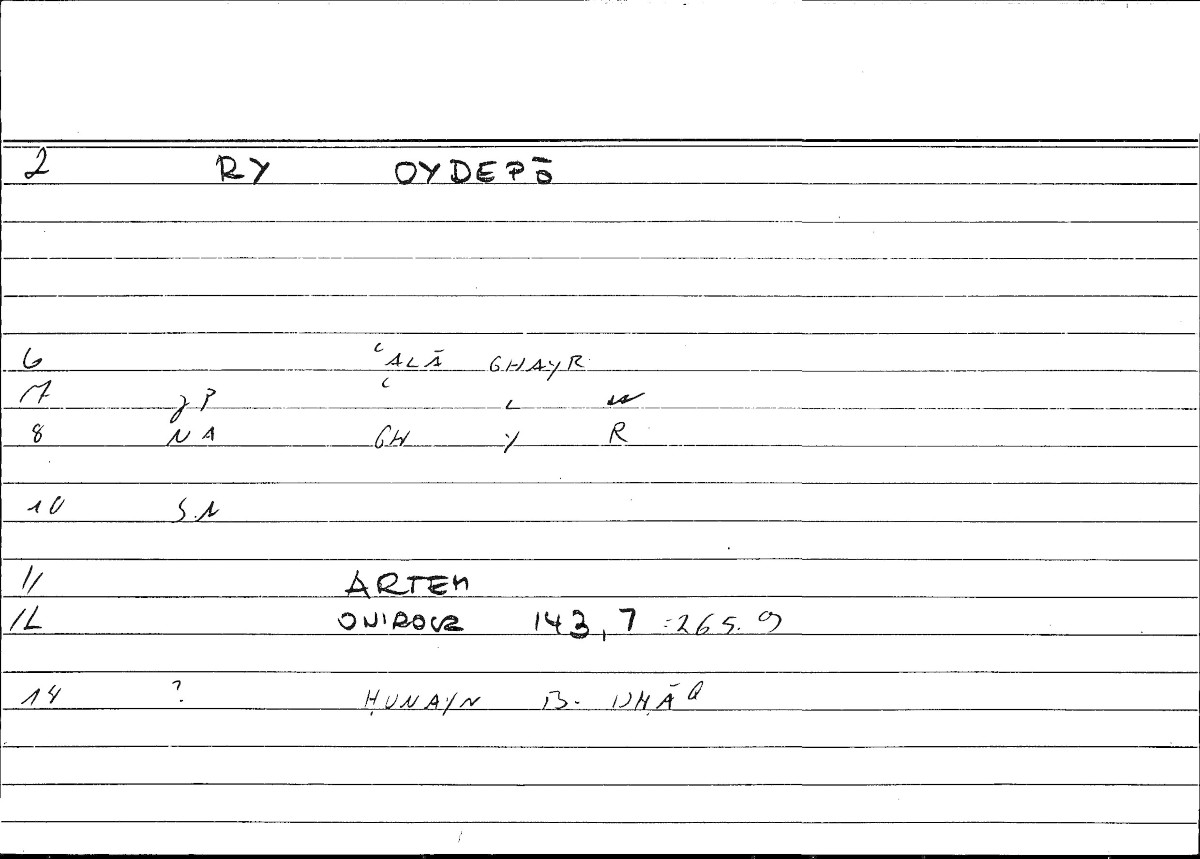 2 RY OYDEPō
6 ʿALĀ GHAYR
7 ʿ L
8 NA GH Y R
10 S.N
11 ARTEM
12 ONIROCR 143,7 =265.9
14 ? ḤUNAYN B. ISḤĀQ